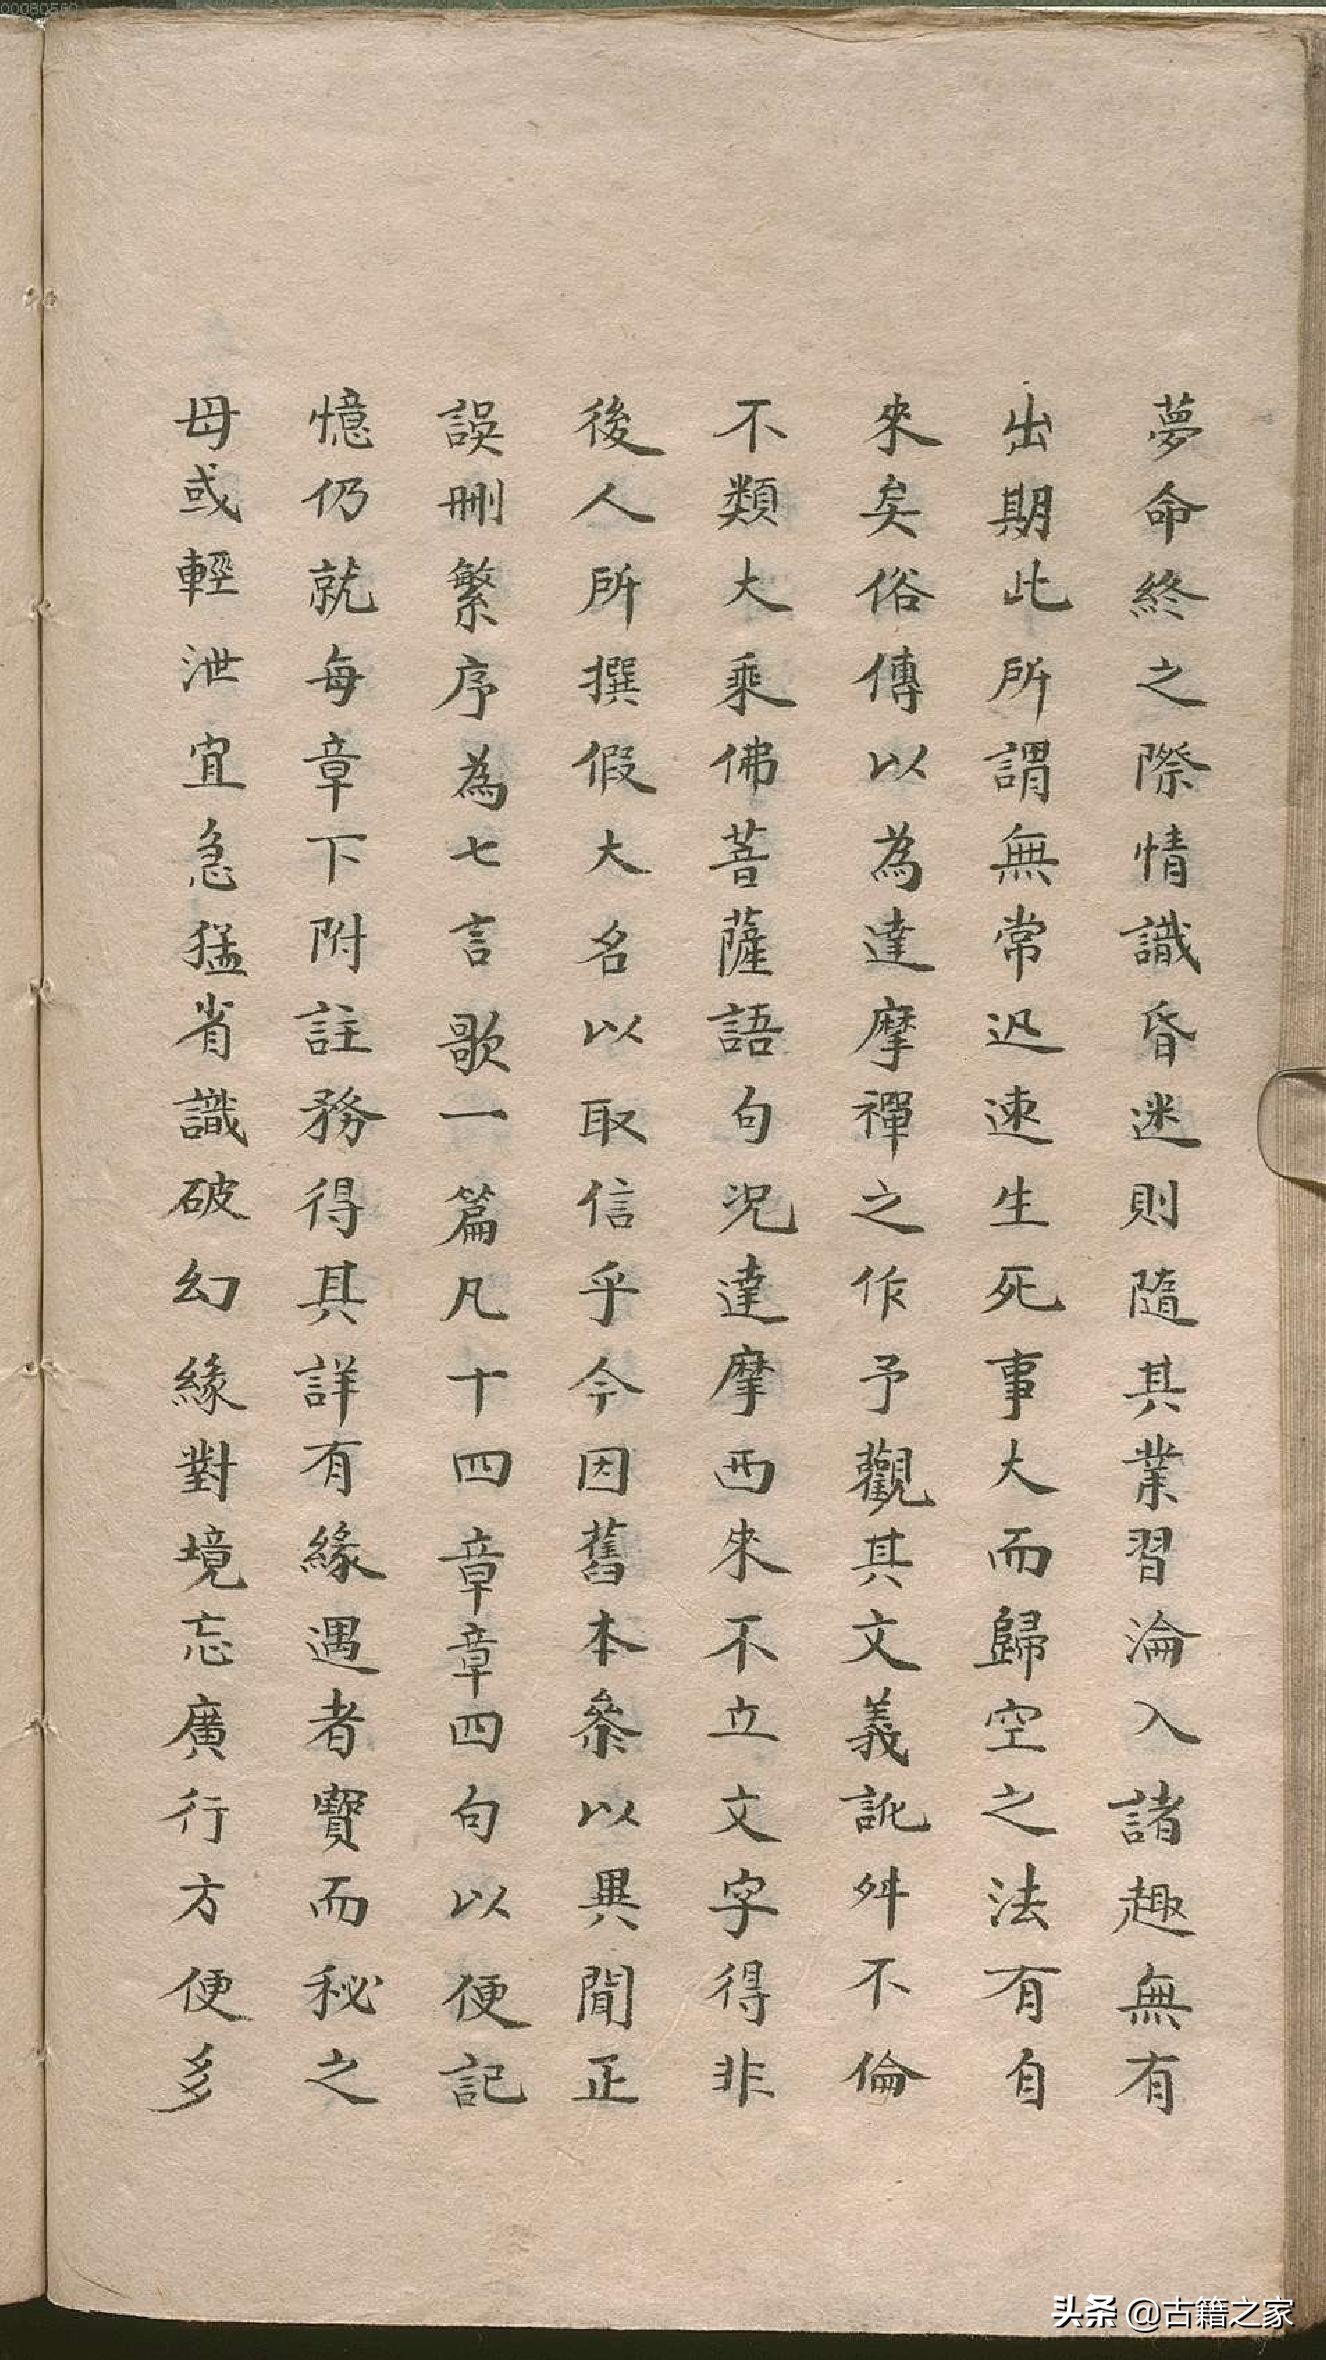 夢命終之際情識昏迷則隨其業習淪入諸趣無有
出期此所謂無常迅速生死事大而歸空之法有自
來矣俗傳以為達摩禪之作予觀其文義訛舛不倫
不類大乘佛菩薩語句況達摩西來不立文字得非
後人所撰假大名以取信乎今因舊本叅以異聞正
誤刪繁序為七言歌一篇凡十四章章四句以便記
憶仍就每章下附註務得其詳有緣遇者寶而秘之
毋或輕泄宜急猛省識破幻緣對境忘廣行方便多
00080560
头条 @古籍之家